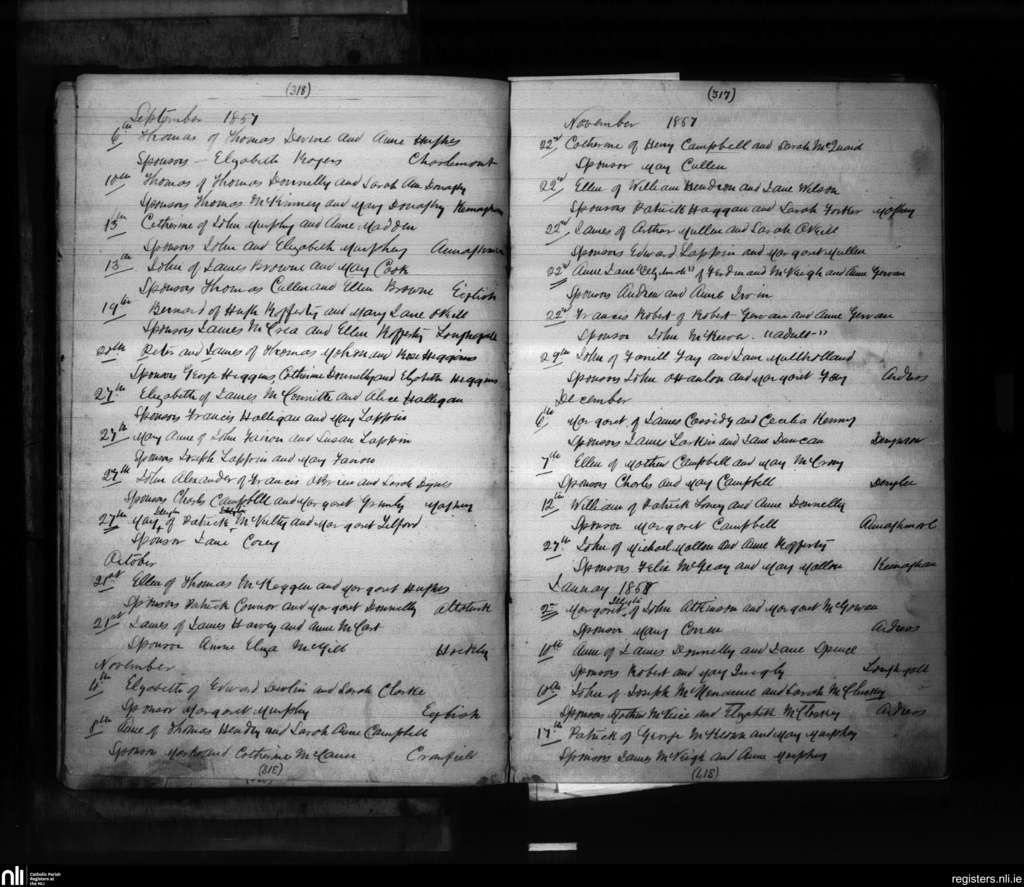 (318)
September 1857
6th Thomas of Thomas Devine and Anne Hughes
Sponsors - Elyabeth Rogers Charlemont
10th Thomas of Thomas Donnelly and Sarah Ann Donaghy
Sponsors Thomas McKinney and Mary Donaghy Kemaghan
13th Catherine of John Murphy and Anne Madden
Sponsors John and Elyabeth Murphy
13th John of James Browne and Mary Cook
Sponsors Thomas Cullen and Ellen Browne Eglish
19th Bernard of Hugh Rafferty and Mary Jane O'Neill
Sponsors James McCrea and Ellen Rafferty Loughgall
20th Peter and James of Thomas and Rose Higgins
Sponsors George Higgins, Catherine Donnelly and Elyabeth Higgins
27th Elyabeth of James McConville and Alice Halligan
Sponsors Francis Halligan and Mary Lappin
27th Mary Anne of John Fanon and Susan Lappin
Sponsors Joseph Lappin and Mary Fanon
27th John Alexander of Francis O'Brien and Sarah
Sponsors Charles Campbell and Margaret Grimley
27th Mary of Patrick McNulty and Margaret Telford
Sponsor Jane Corey
October
21st Ellen of Thomas McKeggan and Margaret Hughes
Sponsors Patrick Connor and Margaret Donnelly Altaturk
21st James of James Harvey and Anne McCart
Sponsor Anne Eliza McGill
November
Elyabeth of Edward and Sarah Clarke
Sponsor Margaret Murphy Eglish
8th Anne of Thomas Hendry and Sarah Anne Campbell
Sponsor and Catherine McCann
(318)
(317)
November 1857
22nd Catherine of Henry Campbell and Sarah McQuaid
Sponsor Mary Cullen
22nd Ellen of William Hendron and Jane Wilson
Sponsors Patrick Haggan and Sarah Forker
22nd James of Arthur Mullen and Sarah O'Neill
Sponsors Edward Lappin and Margaret Mullen
22nd Anne Jane of Ferdinand McVeigh and Anne Gervan
Sponsors Andrew and Irvin
22nd Francis Robert of Robert Gervan and Anne Gervan
Sponsor John McKeever. "adult"
29th John of Farrell Fay and Jane Mullholland
Sponsors John O'Hanlon and Margaret Fay Ardress
December
6th Margaret of James Cassidy and Cecilia
Sponsors James Larkin and Jane Duncan
7th Ellen of Mathew Campbell and Mary McCrory
Sponsors Charles and Mary Campbell
12th William of Patrick Loney and Anne Donnelly
Sponsor Margaret Campbell Annaghmore
27th John of Michael Mallon and Anne Rafferty
Sponsors Felix McGeary and Mary Mallon Kemaghan
January 1858
2nd Margaret of John Atkinson and Margaret McGowan
Sponsor Mary Ardress
10th Anne of James Donnelly and Jane Spence
Sponsors Robert and Mary Quigly Loughgall
10th John of Joseph McKendrue and Sarah McCluskey
Sponsors Mather McVeice and Elyabeth McCloskey Ardress
17th Patrick of George McKeown and Mary Murphy
Sponsors James McVeigh and Anne Murphy
(218)
nli
Catholic Parish
Registers at
the NLI
registers.nli.ie